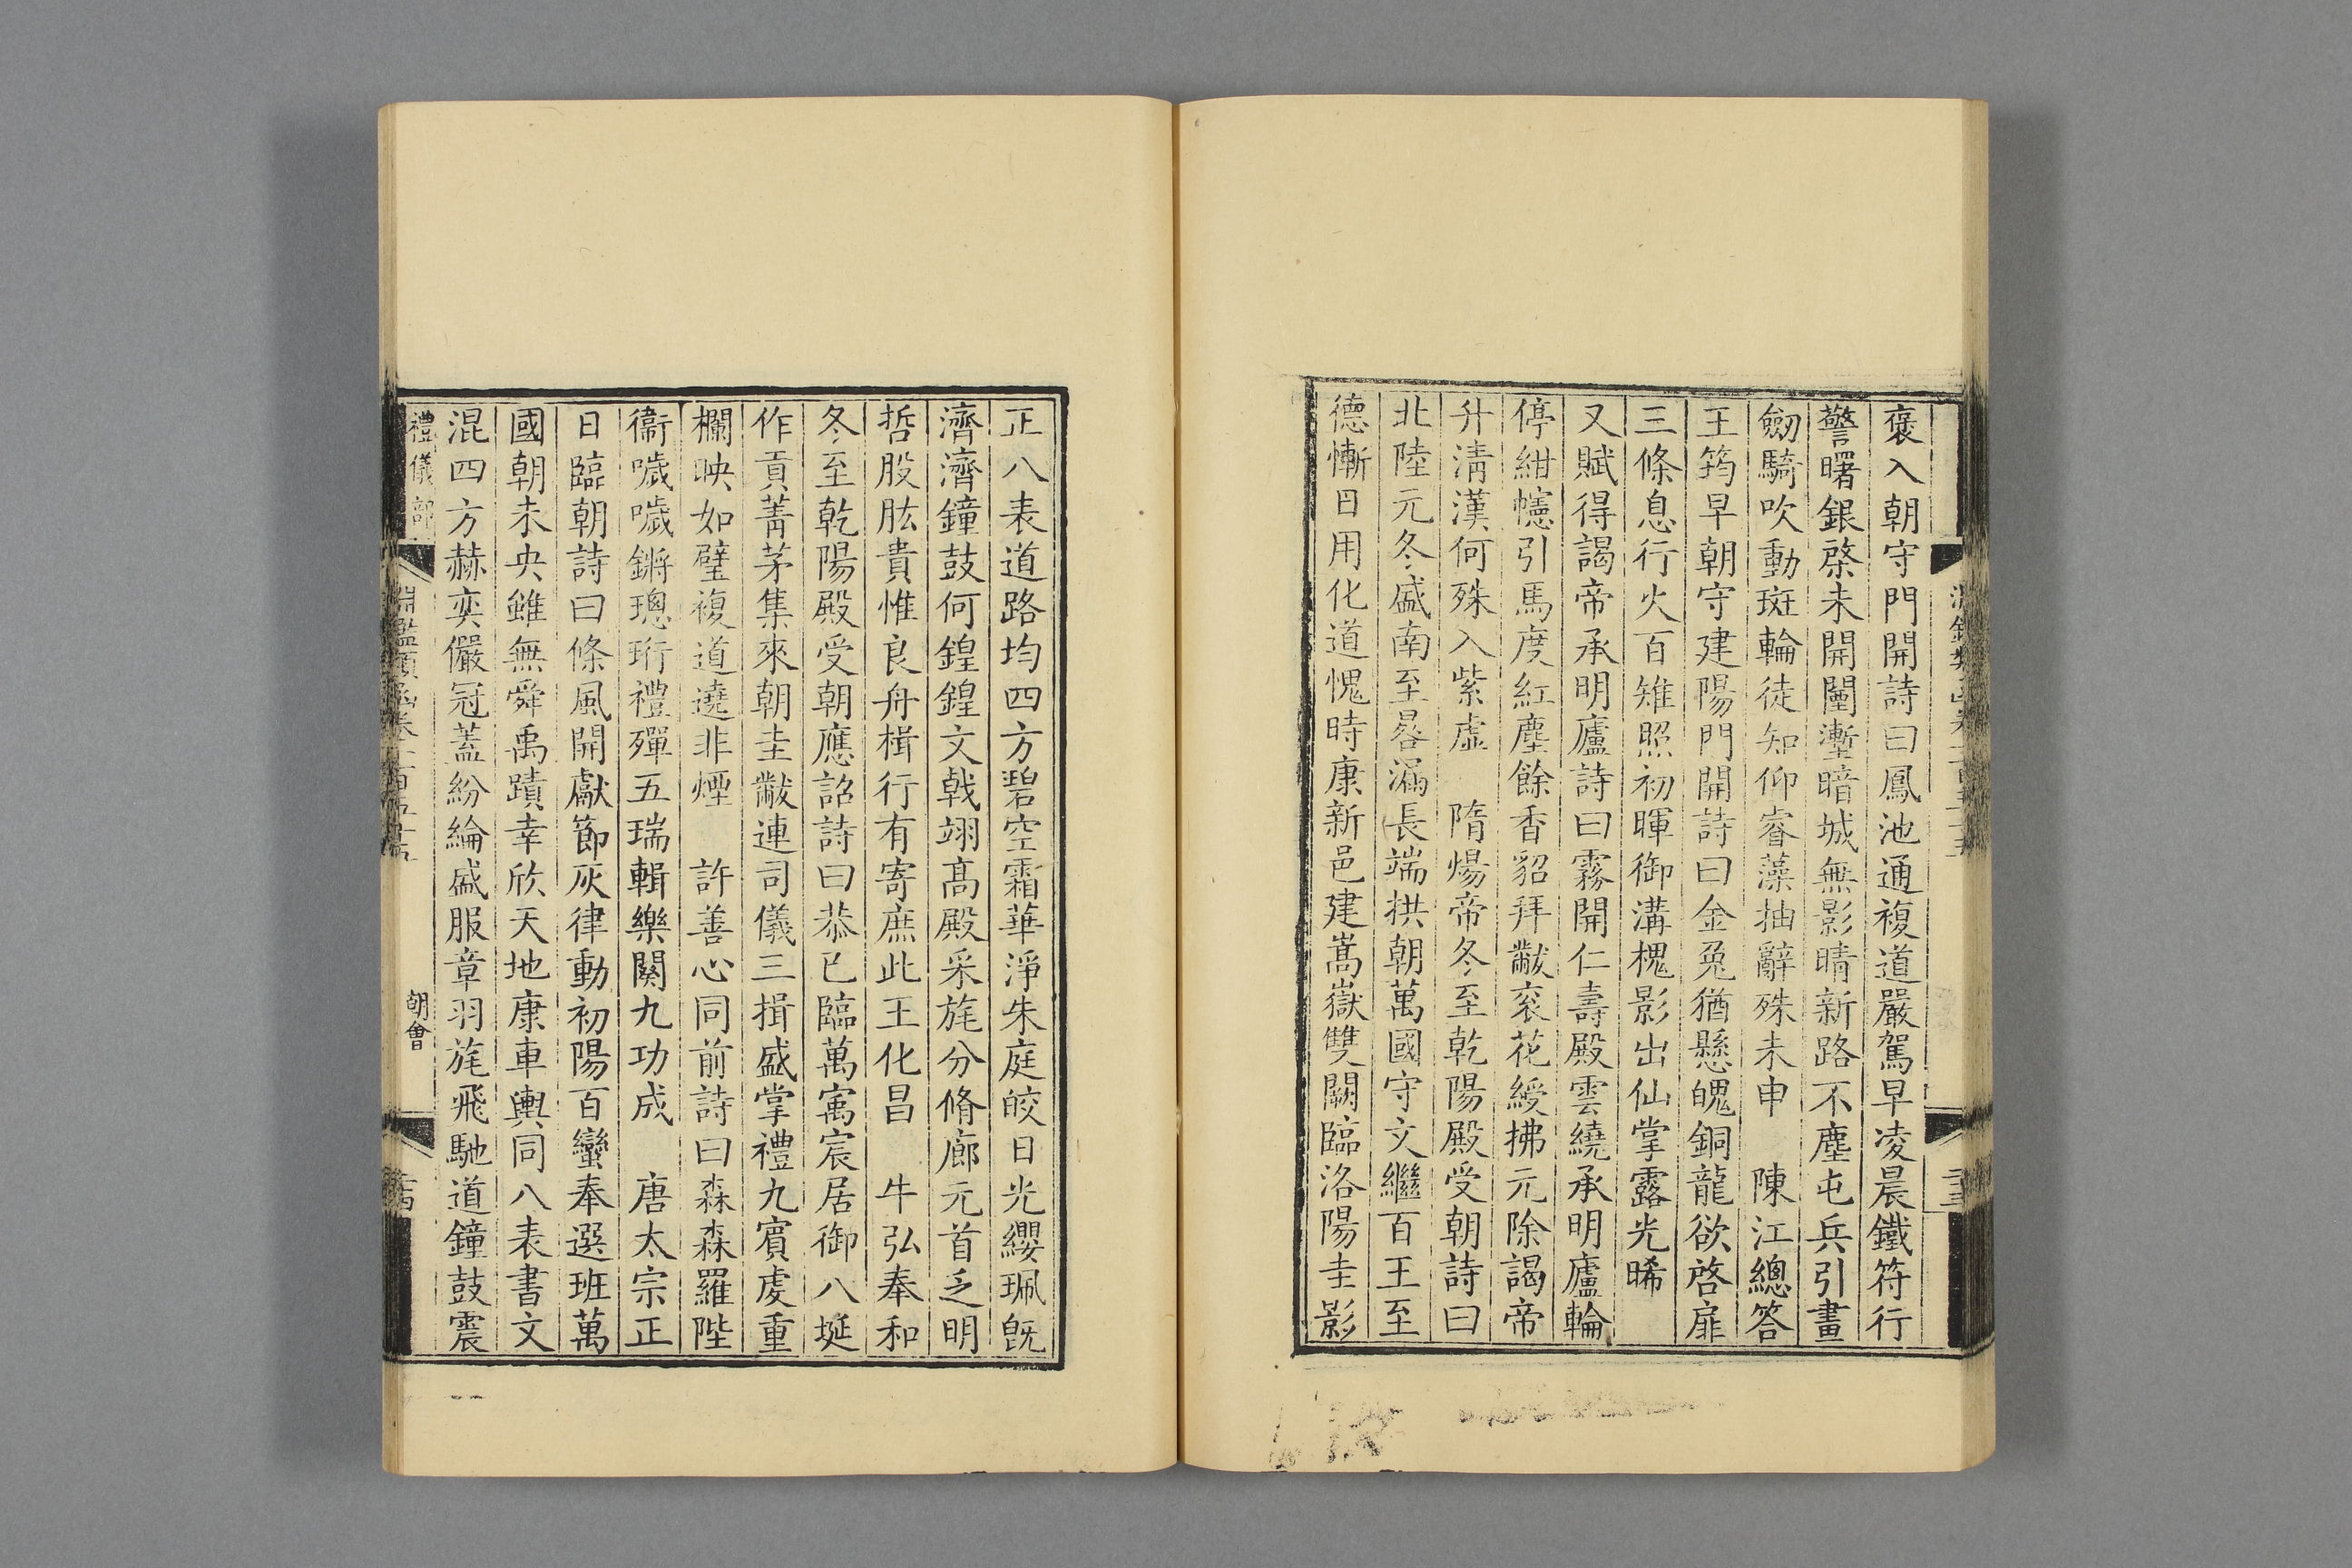 褎入朝守門開詩曰鳳池通複道嚴駕早凌晨鐵符行
警曙銀棨未開闉塹暗城無影晴新路不塵屯兵引畫
劒騎吹動斑輪徒知仰睿藻抽辭殊未申　陳江總答
王筠早朝守建陽門開詩曰金兎猶懸魄銅龍欲啓扉
三條息行火百雉照初暉御溝槐影出仙掌露光晞
又賦得謁帝承明廬詩曰霧開仁壽殿雲繞承明廬輪
停紺幰引馬度紅塵餘香貂拜黻衮花綬拂元除謁帝
升清漢何殊入紫虛　隋煬帝冬至乾陽殿受朝詩曰
北陸元冬盛南至晷漏長端拱朝萬國守文繼百王至
德慚日用化道愧時康新邑建嵩嶽雙闕臨洛陽圭影
正八表道路均四方碧空霜華淨朱庭皎日光纓珮旣
濟濟鐘鼓何鍠鍠文戟翊髙殿采旄分脩廊元首乏明
哲股肱貴惟良舟楫行有寄庶此王化昌　牛弘奉和
冬至乾陽殿受朝應詔詩曰恭已臨萬寓宸居御八埏
作貢菁茅集來朝圭黻連司儀三揖盛掌禮九賓虔重
欄映如璧複道遶非煙　許善心同前詩曰森森羅陛
衞噦噦鏘璁珩禮殫五瑞輯樂闋九功成　唐太宗正
日臨朝詩曰條風開獻節灰律動初陽百蠻奉遐班萬
國朝未央雖無舜禹蹟幸欣天地康車輿同八表書文
混四方赫奕儼冠蓋紛綸盛服章羽旄飛馳道鐘鼓震
禮儀部
淵鑑類函卷一百五十五
朝會